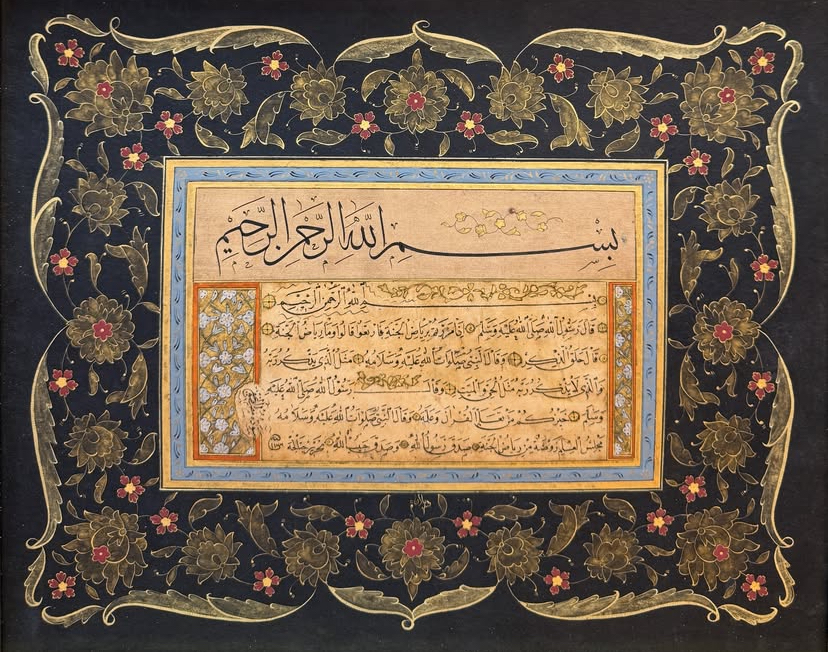 بِسْمِ اللهِ الرَّحْمٰنِ الرَّحِيمِ
بسم الله الرحمن الرحيم
قال رسول الله صلى الله عليه وسلم إذا مررتم برياض الجنة فارتعوا قالوا وما رياض الجنة
قال حلق الذكر وقال النبي صلوات الله عليه وسلامه مثل الذي يذكر ربه
والذي لا يذكر ربه مثل الحي والميت وقال رسول الله صلى الله عليه
وسلم خيركم من تعلم القرآن وعلمه وقال النبي صلوات الله عليه وسلامه
مجلس العلم روضة من رياض الجنة صدق الله وصدق حبيب الله